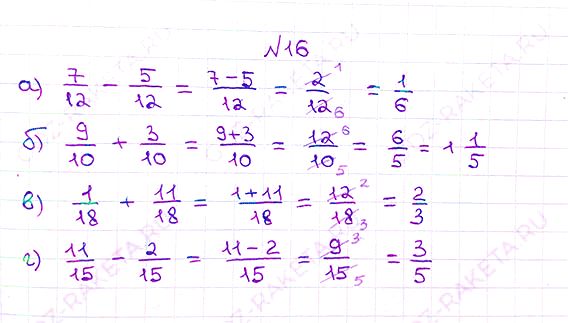 №16
а) 7/12 − 5/12 = (7−5)/12 = 2̶ ¹/1̶2̶ ₆ = 1/6
б) 9/10 + 3/10 = (9+3)/10 = 1̶2̶ ⁶/1̶0̶ ₅ = 6/5 = 1 1/5
в) 1/18 + 11/18 = (1+11)/18 = 1̶2̶ ²/1̶8̶ ₃ = 2/3
г) 11/15 − 2/15 = (11−2)/15 = 9̶ ³/1̶5̶ ₅ = 3/5